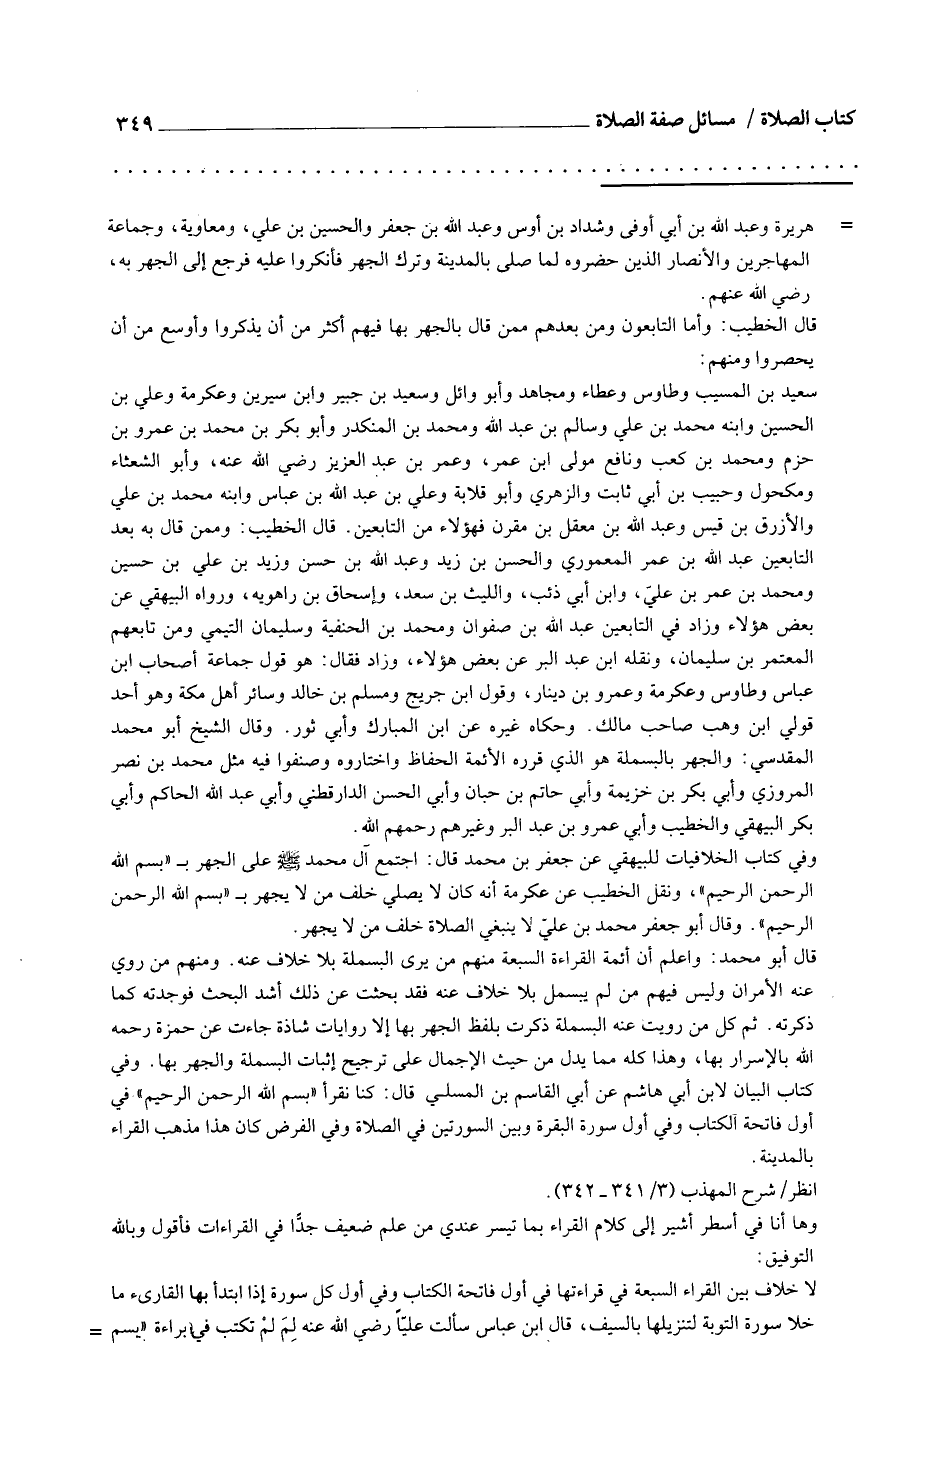 كتاب الصلاة / مسائل صفة الصلاة ـــــــــ ٣٤٩
= هريرة وعبد الله بن أبي أوفى وشداد بن أوس وعبد الله بن جعفر والحسين بن علي، ومعاوية، وجماعة
المهاجرين والأنصار الذين حضروه لما صلى بالمدينة وترك الجهر فأنكروا عليه فرجع إلى الجهر به،
رضي الله عنهم.
قال الخطيب: وأما التابعون ومن بعدهم ممن قال بالجهر بها فيهم أكثر من أن يذكروا وأوسع من أن
يحصروا ومنهم:
سعيد بن المسيب وطاوس وعطاء ومجاهد وأبو وائل وسعيد بن جبير وابن سيرين وعكرمة وعلي بن
الحسين وابنه محمد بن علي وسالم بن عبد الله ومحمد بن المنكدر وأبو بكر بن محمد بن عمرو بن
حزم ومحمد بن كعب ونافع مولى ابن عمر، وعمر بن عبد العزيز رضي الله عنه، وأبو الشعثاء
ومكحول وحبيب بن أبي ثابت والزهري وأبو قلابة وعلي بن عبد الله بن عباس وابنه محمد بن علي
والأزرق بن قيس وعبد الله بن معقل بن مقرن فهؤلاء من التابعين. قال الخطيب: وممن قال به بعد
التابعين عبد الله بن عمر المعموري والحسن بن زيد وعبد الله بن حسن وزيد بن علي بن حسين
ومحمد بن عمر بن عليّ، وابن أبي ذئب، والليث بن سعد، وإسحاق بن راهويه، ورواه البيهقي عن
بعض هؤلاء وزاد في التابعين عبد الله بن صفوان ومحمد بن الحنفية وسليمان التيمي ومن تابعهم
المعتمر بن سليمان، ونقله ابن عبد البر عن بعض هؤلاء، وزاد فقال: هو قول جماعة أصحاب ابن
عباس وطاوس وعكرمة وعمرو بن دينار، وقول ابن جريج ومسلم بن خالد وسائر أهل مكة وهو أحد
قولي ابن وهب صاحب مالك. وحكاه غيره عن ابن المبارك وأبي ثور. وقال الشيخ أبو محمد
المقدسي: والجهر بالبسملة هو الذي قرره الأئمة الحفاظ واختاروه وصنفوا فيه مثل محمد بن نصر
المروزي وأبي بكر بن خزيمة وأبي حاتم بن حبان وأبي الحسن الدارقطني وأبي عبد الله الحاكم وأبي
بكر البيهقي والخطيب وأبي عمرو بن عبد البر وغيرهم رحمهم الله.
وفي كتاب الخلافيات للبيهقي عن جعفر بن محمد قال: اجتمع آل محمد ﷺ على الجهر بـ «بسم الله
الرحمن الرحيم»، ونقل الخطيب عن عكرمة أنه كان لا يصلي خلف من لا يجهر بـ «بسم الله الرحمن
الرحيم». وقال أبو جعفر محمد بن عليّ لا ينبغي الصلاة خلف من لا يجهر.
قال أبو محمد: واعلم أن أئمة القراءة السبعة منهم من يرى البسملة بلا خلاف عنه. ومنهم من روي
عنه الأمران وليس فيهم من لم يبسمل بلا خلاف عنه فقد بحثت عن ذلك أشد البحث فوجدته كما
ذكرته. ثم كل من رويت عنه البسملة ذكرت بلفظ الجهر بها إلا روايات شاذة جاءت عن حمزة رحمه
الله بالإسرار بها، وهذا كله مما يدل من حيث الإجمال على ترجيح إثبات البسملة والجهر بها. وفي
كتاب البيان لابن أبي هاشم عن أبي القاسم بن المسلي قال: كنا نقرأ «بسم الله الرحمن الرحيم» في
أول فاتحة الكتاب وفي أول سورة البقرة وبين السورتين في الصلاة وفي الفرض كان هذا مذهب القراء
بالمدينة.
انظر/ شرح المهذب (٣/ ٣٤١ ـ ٣٤٢).
وها أنا في أسطر أشير إلى كلام القراء بما تيسر عندي من علم ضعيف جدًّا في القراءات فأقول وبالله
التوفيق:
لا خلاف بين القراء السبعة في قراءتها في أول فاتحة الكتاب وفي أول كل سورة إذا ابتدأ بها القارىء ما
خلا سورة التوبة لتنزيلها بالسيف، قال ابن عباس سألت عليّاً رضي الله عنه لِمَ لمْ تكتب في براءة «بسم =